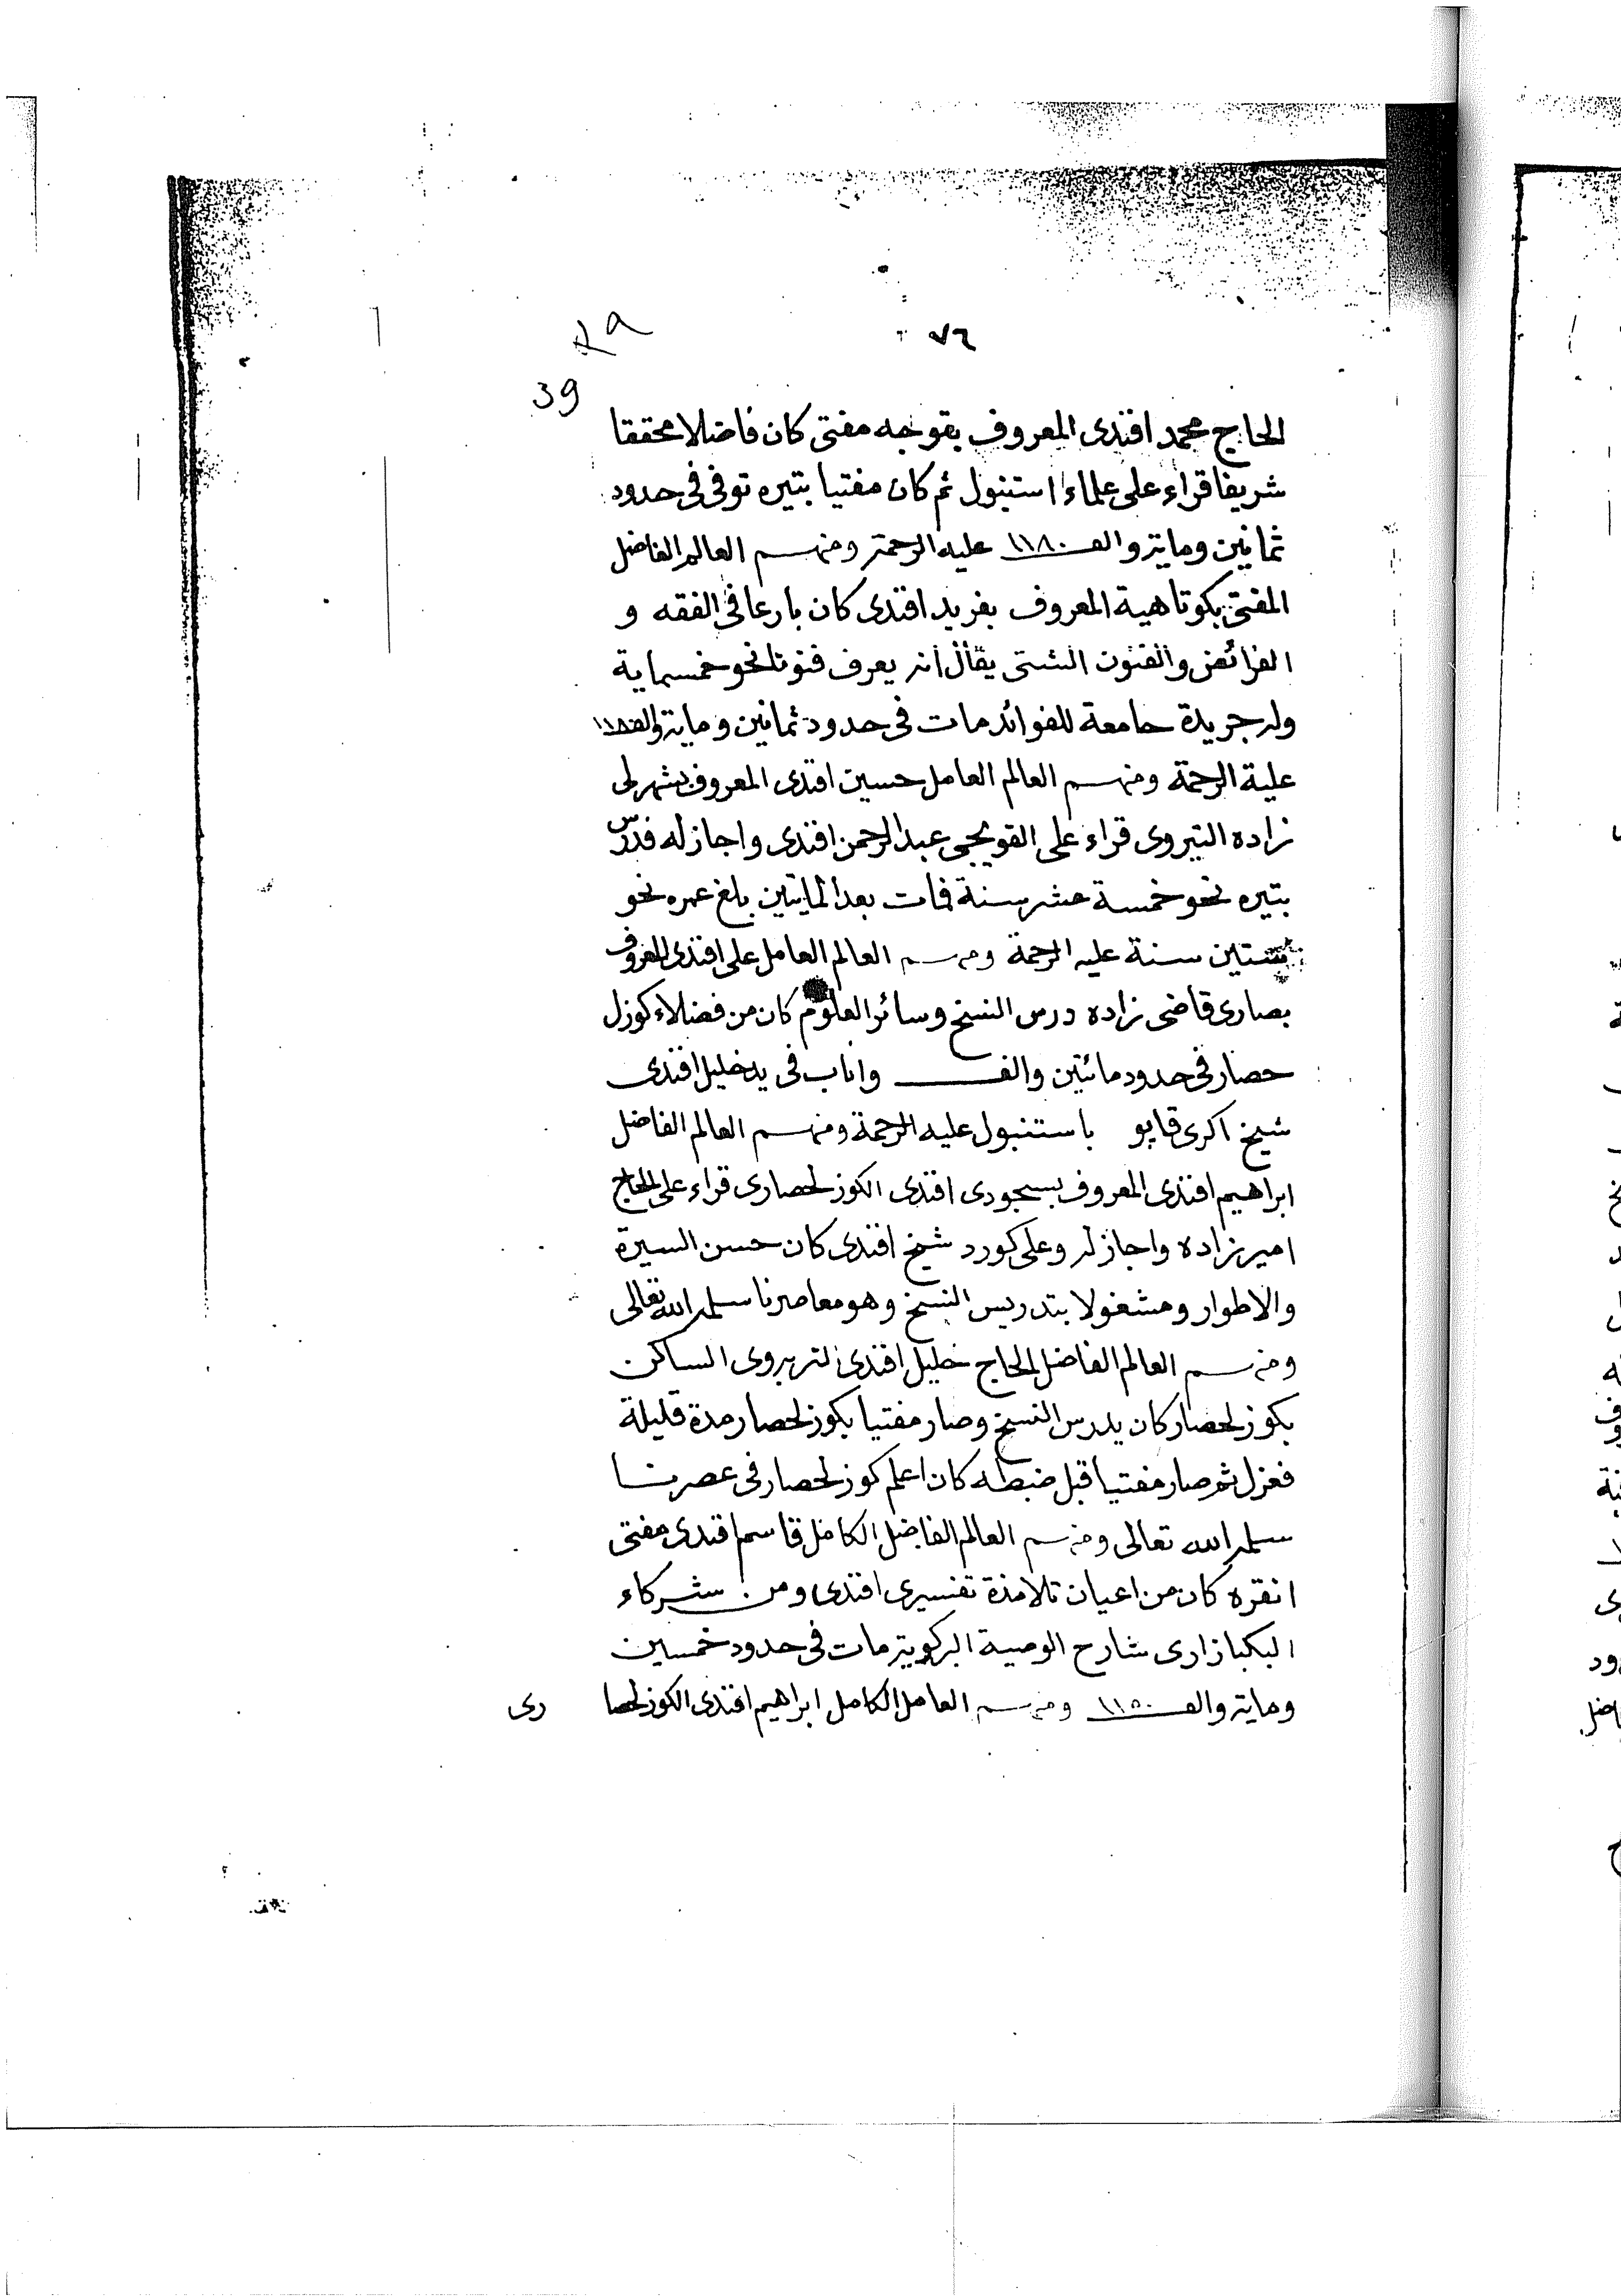 ٧٦
39
الحاج محمد افندى المعروف بقوجه مفتى كان فاضلا محققا
شريفا قراء على علماء استنبول ثم كان مفتيا بتيره توفى فى حدود
ثمانين وماية والف ١١٨٠ عليه الرحمة ومنهم العالم الفاضل
المفتى بكوتاهية المعروف بفريد افندى كان بارعا فى الفقه و
الفرائض والفنون الشتى يقال انه يعرف فنونا نحو خمسماية
وله جريدة جامعة للفوائد مات فى حدود ثمانين وماية والف ١١٨٠
علية الرحمة ومنهم العالم العامل حسين افندى المعروف بشهرلى
زاده التيروى قراء على القويجى عبد الرحمن افندى واجاز له فدرس
بتيره نحو خمسة عشر سنة فمات بعد المايتين بلغ عمره نحو
ستين سنة عليه الرحمة ومنهم العالم العامل على افندى المعروف
بصارى قاضى زاده درس النسخ وسائر العلوم كان من فضلاء كوزل
حصار فى حدود مائتين والف واناب فى يد خليل افندى
شيخ اكرى قاپو باستنبول عليه الرحمة ومنهم العالم الفاضل
ابراهيم افندى المعروف بسجودى افندى الكوزلحصارى قراء على الحاج
امير زاده واجاز له وعلى كورد شيخ افندى كان حسن السيرة
والاطوار ومشغولا بتدريس النسخ وهو معاصرنا سلمه الله تعالى
ومنهم العالم الفاضل الحاج خليل افندى التربروى الساكن
بكوزلحصار كان يدرس النسخ وصار مفتيا بكوزلحصار مدة قليلة
فعزل ثم صار مفتيا قبل ضبطه كان اعلم كوزلحصار فى عصرنا
سلمه الله تعالى ومنهم العالم الفاضل الكامل قاسم افندى مفتى
انقره كان من اعيان تلامذة تفسيرى افندى ومن شركاء
البكبازارى شارح الوصية البركوية مات فى حدود خمسين
وماية والف ١١٥٠ ومنهم العامل الكامل ابراهيم افندى الكوزلحصا
رى